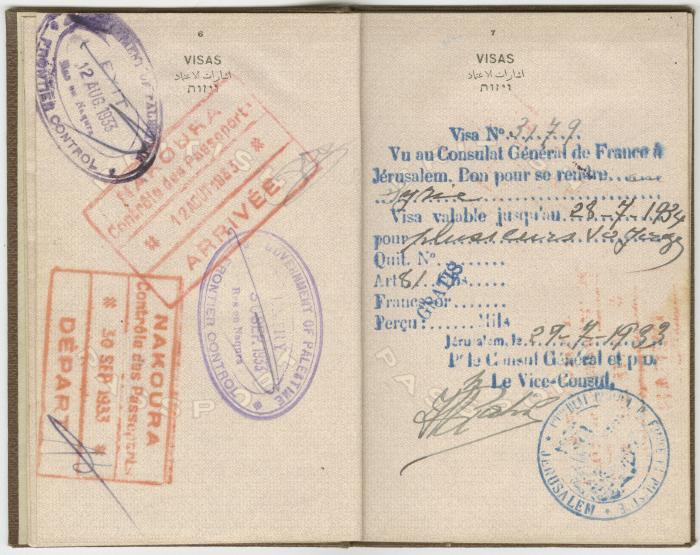 6
VISAS
اشارات الاعتماد
ויזות
GOVERNMENT OF PALESTINE
EXIT
12 AUG. 1933
Ras en Naqura
FRONTIER CONTROL
NAKOURA
Contrôle des Passeports
* 12 AOUT 1933 *
ARRIVÉE
GOVERNMENT OF PALESTINE
ENTRY
1933
Ras en Naqura
FRONTIER CONTROL
NAKOURA
Contrôle des Passeports
* 30 SEP 1933 *
DÉPART
7
VISAS
اشارات الاعتماد
ויזות
Visa Nº 3179
Vu au Consulat Général de France à
Jérusalem. Bon pour se rendre
Syrie
Visa valable jusqu'au 28.7.1934
pour plusieurs voyages
Quit. Nº
Art 81
GRATIS
Francs or
Perçu: Mils
Jérusalem, le 29-7-1933
Pr le Consul Général et p.o.
Le Vice-Consul,
JERUSALEM
PASSPORT